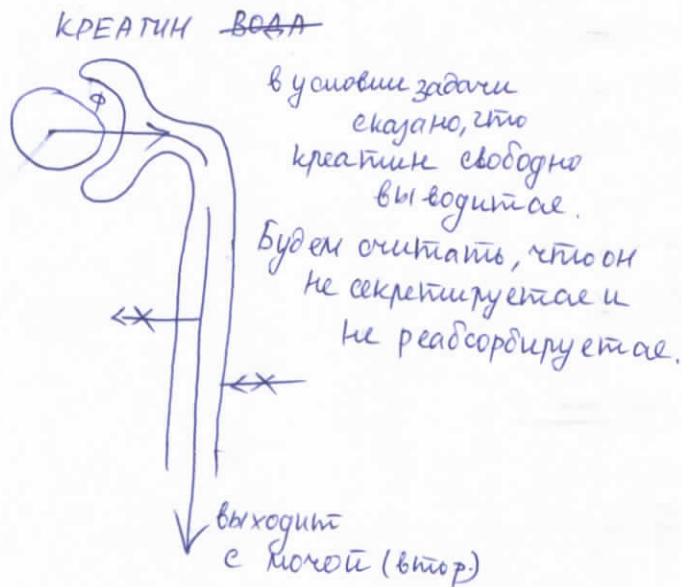 КРЕАТИН ВОДА
Ф
в условии задачи
сказано, что
креатин свободно
выводится.
Будем считать, что он
не секретируется и
не реабсорбируется.
выходит
с мочой (втор.)